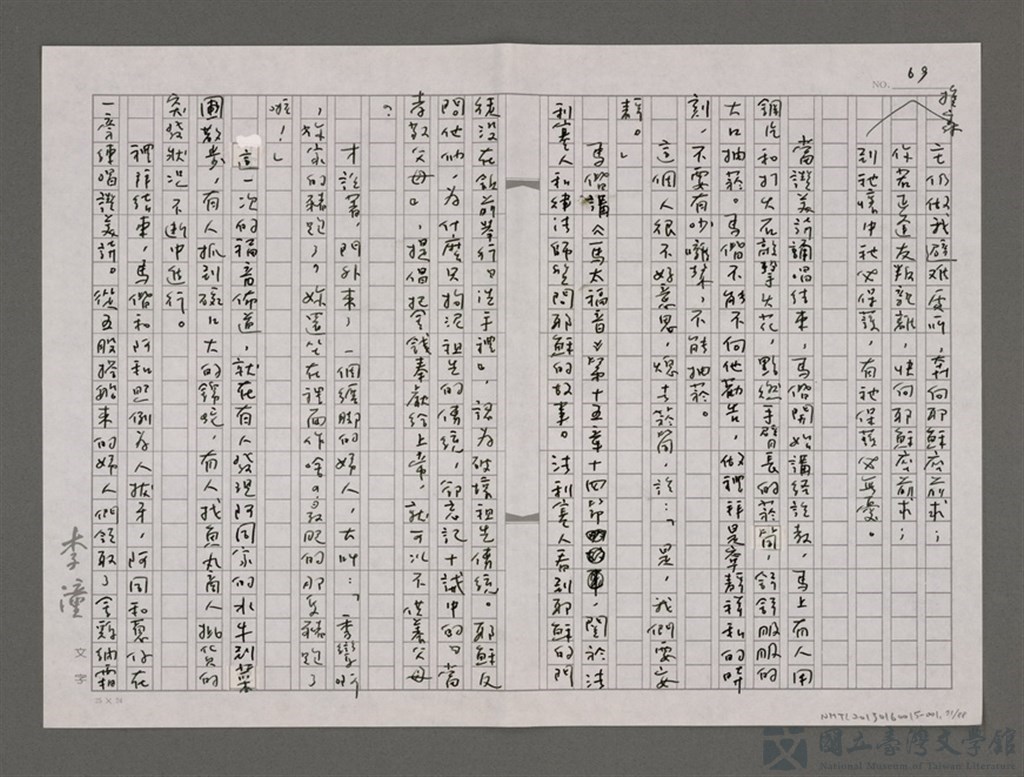 69
NO.
主仍做我避难處所,奔向耶穌座前求;
你若遭逢友叛親離,快向耶穌座前求;
到祂懷中祂必保護,有祂保護必無憂。
當讚美詩誦唱結束,馬偕開始講經說教,馬上有人用
鋼片和打火石敲擊火花,點燃手臂長的菸筒,舒舒服服的
大口抽菸。馬偕不能不向他勸告,做禮拜是莊靜祥和的時
刻,不要有吵嚷聲,不能抽菸。
這個人很不好意思,熄去菸筒,說:「是,我們要安
靜。」
馬偕講《馬太福音》第十五章十四節,関於法
利塞人和律法師質問耶穌的故事。法利塞人看到耶穌的門
徒没在飯前舉行『洗手禮』,認為破壞祖先傳統。耶穌反
問他們,為什麼只拘泥祖先的傳統,卻忘記十誡中的『當
孝敬父母』,提倡把金錢奉獻給上帝,就可以不供養父母
?
才說著,門外來了一個纏脚的婦人,大叫:「李
,妳家的豬跑了,妳還坐在裡面作啥?最肥的那隻豬跑了
啦!」
這一次的福音佈道,就在有人發現阿同家的水牛到菜
園散步,有人抓到碗口大的螃蟹,有人找魚丸商人批貨的
突發狀況不斷中進行。
禮拜結束,馬偕和阿和照例為人拔牙,阿同和蔥仔在
一旁練唱讚美詩。從五股搭船來的婦人們領取了金雞納霜
李潼
文字
25 × 24
NMTL20130160015-001, 71/88
國立臺灣文學館
National Museum of Taiwan Literature